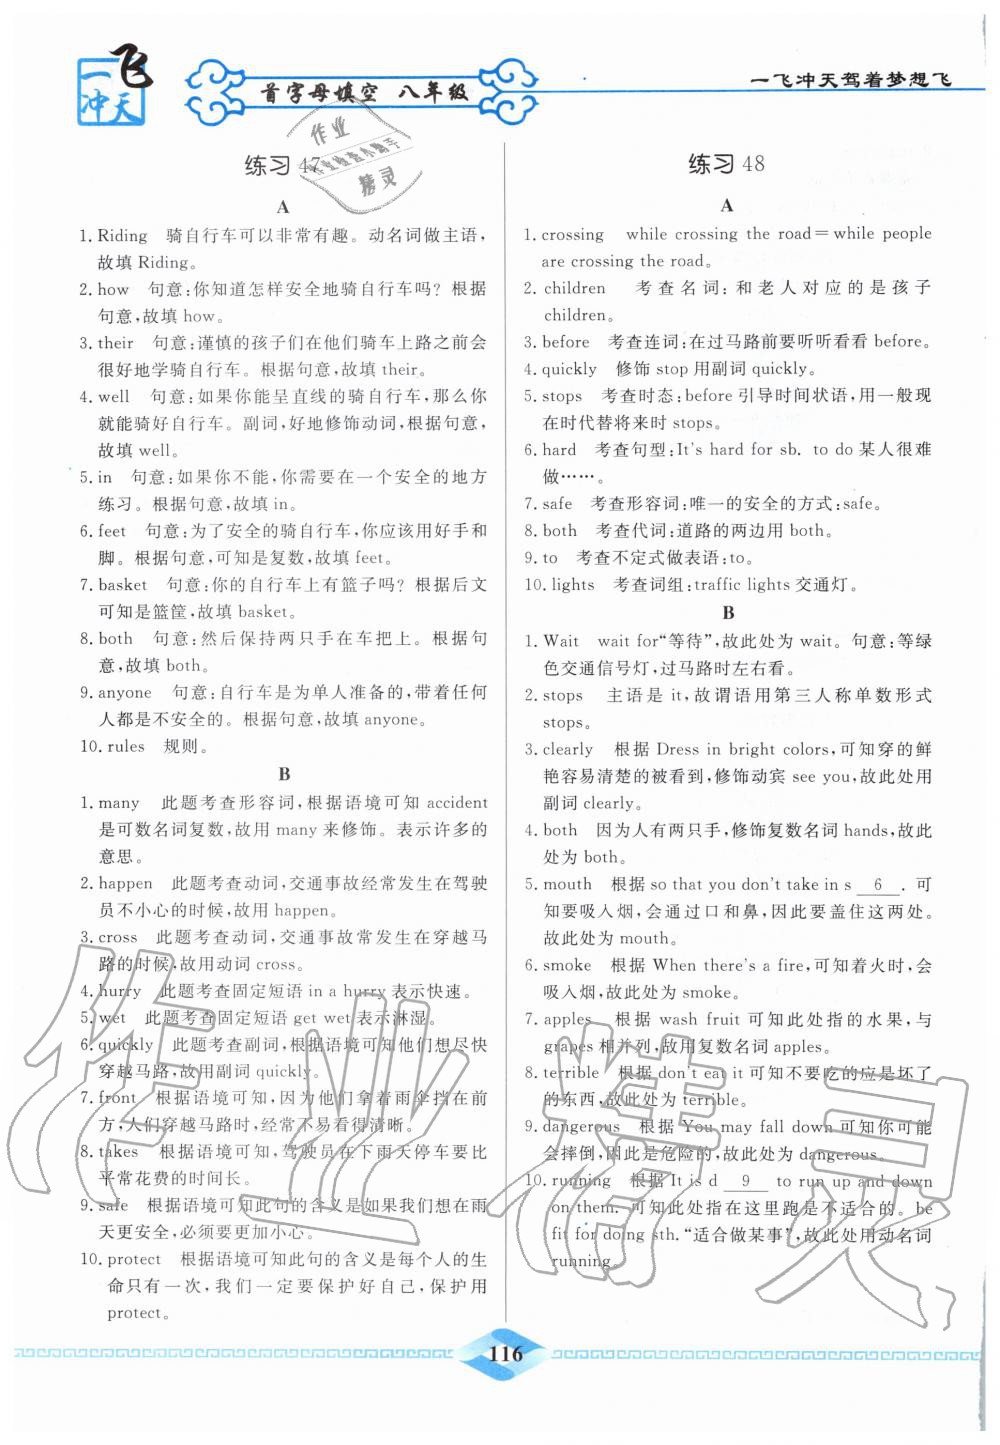 一飞冲天
首字母填空 八年级
一飞冲天驾着梦想飞
作业
作业检查小助手
精灵
练习 47
A
1. Riding 骑自行车可以非常有趣。动名词做主语,
故填 Riding。
2. how 句意:你知道怎样安全地骑自行车吗? 根据
句意,故填 how。
3. their 句意:谨慎的孩子们在他们骑车上路之前会
很好地学骑自行车。根据句意,故填 their。
4. well 句意:如果你能呈直线的骑自行车,那么你
就能骑好自行车。副词,好地修饰动词,根据句意,
故填 well。
5. in 句意:如果你不能,你需要在一个安全的地方
练习。根据句意,故填 in。
6. feet 句意:为了安全的骑自行车,你应该用好手和
脚。根据句意,可知是复数,故填 feet。
7. basket 句意:你的自行车上有篮子吗? 根据后文
可知是篮筐,故填 basket。
8. both 句意:然后保持两只手在车把上。根据句
意,故填 both。
9. anyone 句意:自行车是为单人准备的,带着任何
人都是不安全的。根据句意,故填 anyone。
10. rules 规则。
B
1. many 此题考查形容词,根据语境可知 accident
是可数名词复数,故用 many 来修饰。表示许多的
意思。
2. happen 此题考查动词,交通事故经常发生在驾驶
员不小心的时候,故用 happen。
3. cross 此题考查动词,交通事故常发生在穿越马
路的时候,故用动词 cross。
4. hurry 此题考查固定短语 in a hurry 表示快速。
5. wet 此题考查固定短语 get wet 表示淋湿。
6. quickly 此题考查副词,根据语境可知他们想尽快
穿越马路,故用副词 quickly。
7. front 根据语境可知,因为他们拿着雨伞挡在前
方,人们穿越马路时,经常不易看得清晰。
8. takes 根据语境可知,驾驶员在下雨天停车要比
平常花费的时间长。
9. safe 根据语境可知此句的含义是如果我们想在雨
天更安全,必须要更加小心。
10. protect 根据语境可知此句的含义是每个人的生
命只有一次,我们一定要保护好自己,保护用
protect。
练习 48
A
1. crossing while crossing the road=while people
are crossing the road。
2. children 考查名词:和老人对应的是孩子
children。
3. before 考查连词:在过马路前要听听看看 before。
4. quickly 修饰 stop 用副词 quickly。
5. stops 考查时态:before 引导时间状语,用一般现
在时代替将来时 stops。
6. hard 考查句型:It's hard for sb. to do 某人很难
做……。
7. safe 考查形容词:唯一的安全的方式:safe。
8. both 考查代词:道路的两边用 both。
9. to 考查不定式做表语:to。
10. lights 考查词组:traffic lights 交通灯。
B
1. Wait wait for“等待”,故此处为 wait。句意:等绿
色交通信号灯,过马路时左右看。
2. stops 主语是 it,故谓语用第三人称单数形式
stops。
3. clearly 根据 Dress in bright colors,可知穿的鲜
艳容易清楚的被看到,修饰动宾 see you,故此处用
副词 clearly。
4. both 因为人有两只手,修饰复数名词 hands,故此
处为 both。
5. mouth 根据 so that you don't take in s 6 . 可
知要吸入烟,会通过口和鼻,因此要盖住这两处。
故此处为 mouth。
6. smoke 根据 When there's a fire,可知着火时,会
吸入烟,故此处为 smoke。
7. apples 根据 wash fruit 可知此处指的水果,与
grapes 相并列,故用复数名词 apples。
8. terrible 根据 don't eat it 可知不要吃的应是坏了
的东西,故此处为 terrible。
9. dangerous 根据 You may fall down 可知你可能
会摔倒,因此是危险的,故此处为 dangerous。
10. running 根据 It is d 9 to run up and down
on them. 可知此处指在这里跑是不适合的。be
fit for doing sth.“适合做某事”,故此处用动名词
running。
116
作业精灵